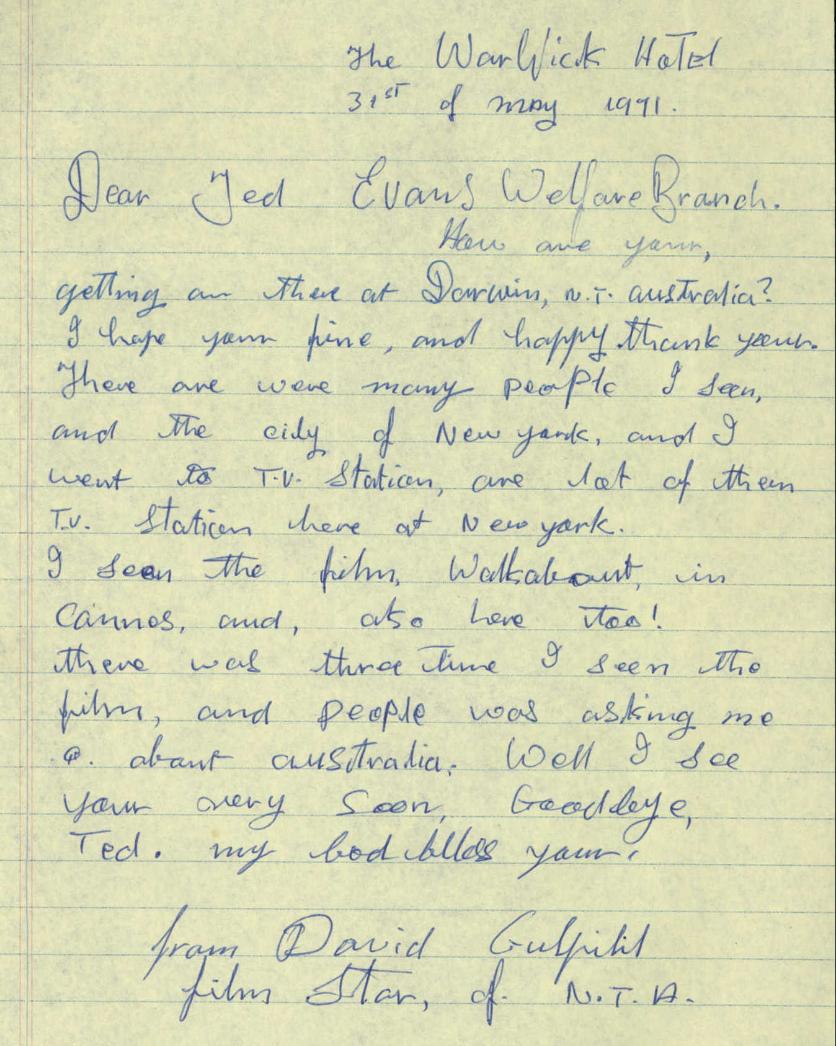 The Warwick Hotel
31st of may 1971.
Dear Ted Evans Welfare Branch.
How are your,
getting on there at Darwin, N.T. australia?
I hope your fine, and happy thank your.
There are were many people I seen,
and the city of New york, and I
went to T.V. Station, are lot of them
T.V. Station here at New york.
I seen the film, Walkabout, in
Cannes, and, also here too!
there was three Time I seen the
film, and people was asking me
a. about australia. Well I see
your very soon, Goodbye,
Ted. my God bless your.
from David Gulpilil
film Star, of. N.T.A.